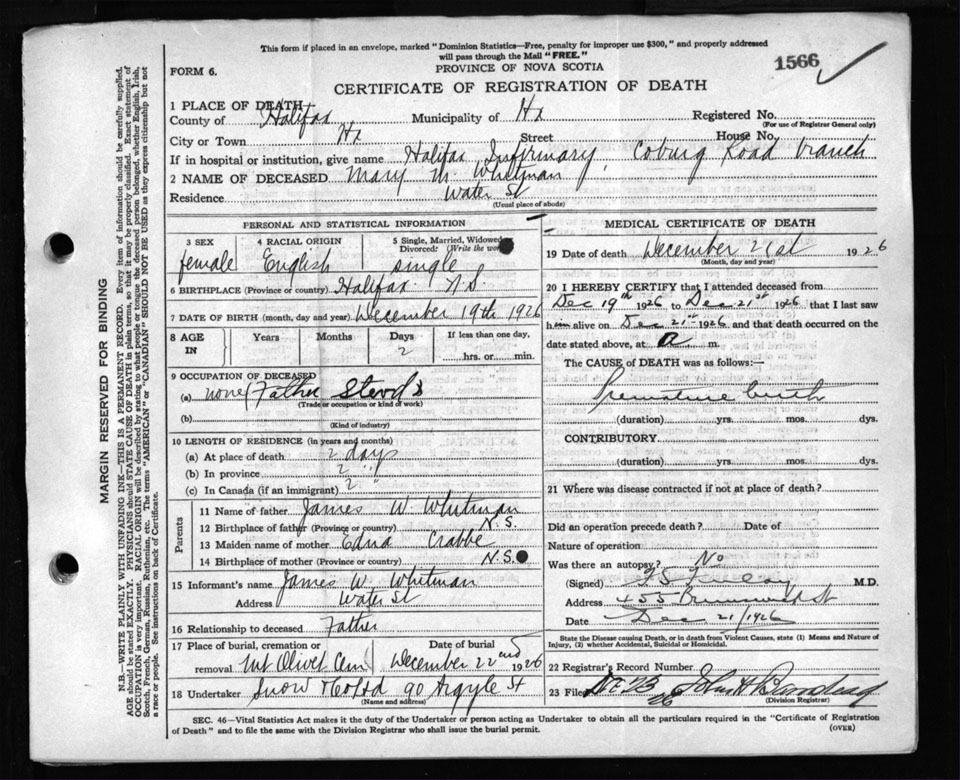 This form if placed in an envelope, marked "Dominion Statistics—Free, penalty for improper use $300," and properly addressed
will pass through the Mail "FREE."
1566
FORM 6.
PROVINCE OF NOVA SCOTIA
CERTIFICATE OF REGISTRATION OF DEATH
MARGIN RESERVED FOR BINDING
N.B.—WRITE PLAINLY WITH UNFADING INK—THIS IS A PERMANENT RECORD. Every item of information should be carefully supplied.
AGE should be stated EXACTLY. PHYSICIANS should STATE CAUSE OF DEATH in plain terms, so that it may be properly classified. Exact statement of
OCCUPATION is very important. RACIAL ORIGIN will be described by stating to what people or tongue the deceased person belonged, whether English, Irish,
Scotch, French, German, Russian, Ruthenian, etc. The terms "AMERICAN" or "CANADIAN" SHOULD NOT BE USED as they express citizenship but not
a race or people. See instructions on back of Certificate.
1 PLACE OF DEATH
County of Halifax Municipality of Hx Registered No.
(For use of Registrar General only)
City or Town Hx Street House No.
If in hospital or institution, give name Halifax Infirmary, Coburg Road branch
2 NAME OF DECEASED Mary M. Whitman
Residence Water St
(Usual place of abode)
PERSONAL AND STATISTICAL INFORMATION
3 SEX 4 RACIAL ORIGIN 5 Single, Married, Widowed
Divorced: (Write the
female English single
6 BIRTHPLACE (Province or country) Halifax N.S.
7 DATE OF BIRTH (month, day and year) December 19th 1926
8 AGE IN Years Months Days If less than one day,
2 hrs. or min.
9 OCCUPATION OF DECEASED
(a) none (Father
(Trade or occupation or kind of work)
(b)
(Kind of industry)
10 LENGTH OF RESIDENCE (in years and months)
(a) At place of death 2 days
(b) In province 2 "
(c) In Canada (if an immigrant) 2 "
Parents
11 Name of father James W. Whitman
12 Birthplace of father (Province or country) N.S.
13 Maiden name of mother Edna Crabbe
14 Birthplace of mother (Province or country) N.S.
15 Informant's name James W. Whitman
Address Water St
16 Relationship to deceased Father
17 Place of burial, cremation or Date of burial
removal Mt Olivet Cem December 22nd 1926
18 Undertaker Snow & Co Ltd 90 Argyle St
(Name and address)
MEDICAL CERTIFICATE OF DEATH
19 Date of death December 21st 1926
(Month, day and year)
20 I HEREBY CERTIFY that I attended deceased from
Dec 19th 1926 to Dec 21st 1926 that I last saw
h alive on Dec 21st 1926 and that death occurred on the
date stated above, at a m.
The CAUSE OF DEATH was as follows:—
Premature birth
(duration) yrs. mos. dys.
CONTRIBUTORY
(duration) yrs. mos. dys.
21 Where was disease contracted if not at place of death?
Did an operation precede death? Date of
Nature of operation
Was there an autopsy? No
(Signed) M.D.
Address 455 Brunswick St
Date Dec 21/1926
State the Disease causing Death, or in death from Violent Causes, state (1) Means and Nature of
Injury, (2) whether Accidental, Suicidal or Homicidal.
22 Registrar's Record Number
23 Filed Dec 26
(Division Registrar)
SEC. 46—Vital Statistics Act makes it the duty of the Undertaker or person acting as Undertaker to obtain all the particulars required in the "Certificate of Registration
of Death" and to file the same with the Division Registrar who shall issue the burial permit. (OVER)